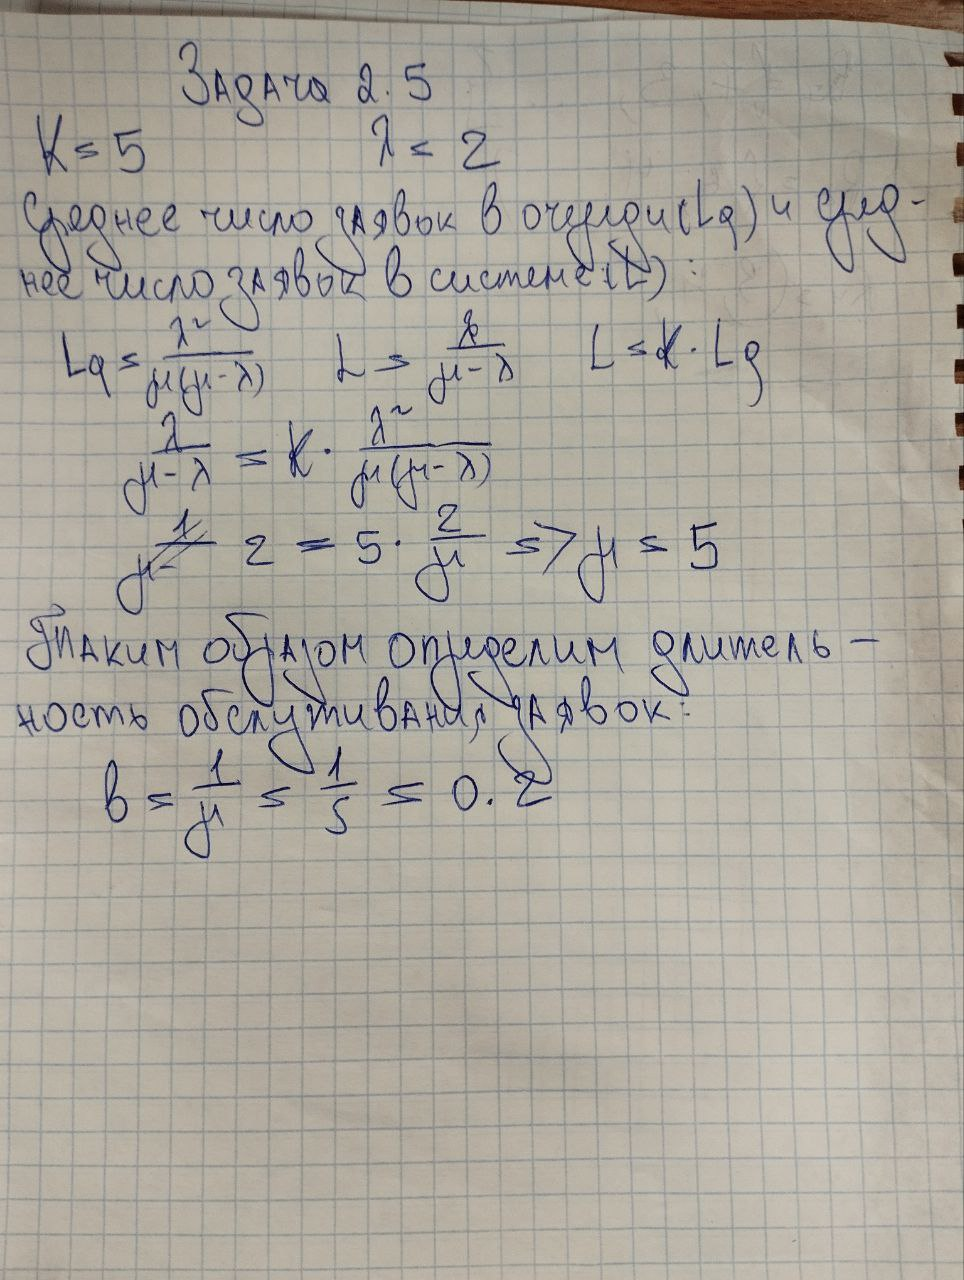 Задача 2.5
K = 5 λ = 2
Среднее число заявок в очереди (Lq) и сред-
нее число заявок в системе (L) :
Lq = λ²/μ(μ-λ) L = λ/μ-λ L = K · Lq
λ/μ-λ = K · λ²/μ(μ-λ)
2 = 5 · 2/μ => μ = 5
Таким образом определим длитель-
ность обслуживания заявок:
b = 1/μ = 1/5 = 0.2